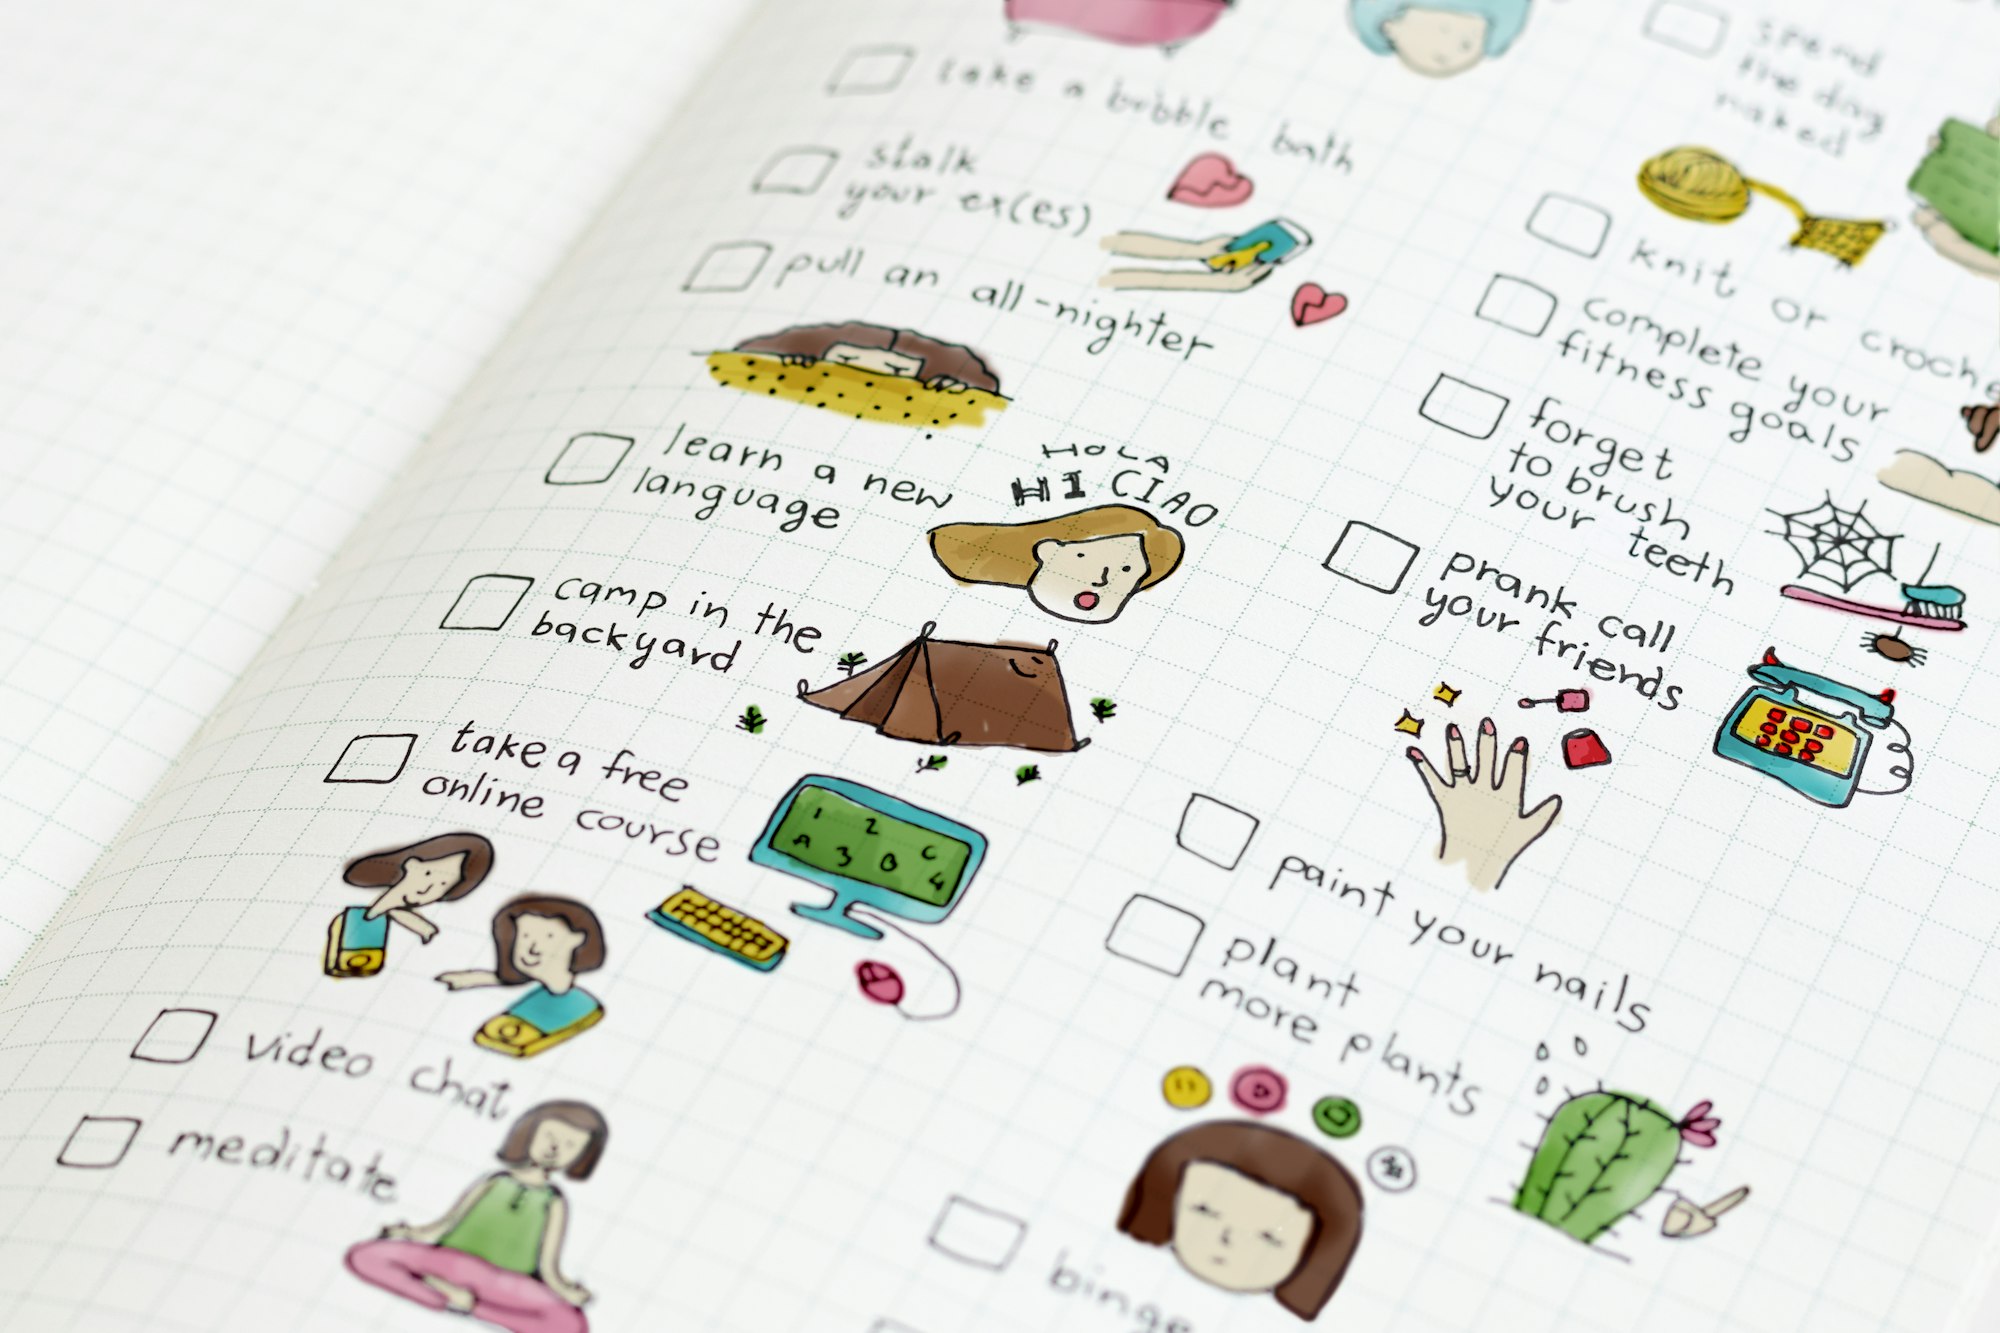 take a bubble bath
stalk
your ex(es)
pull an all-nighter
learn a new
language
HOLA
HI CIAO
camp in the
backyard
take a free
online course
1 2
A 3 B C
4
video chat
meditate
spend
the day
naked
knit or croche
complete your
fitness goals
forget
to brush
your teeth
prank call
your friends
paint your nails
plant
more plants
binge